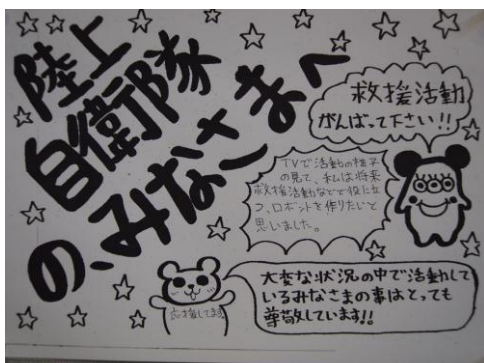 陸上
自衛隊
の、みなさまへ
救援活動
がんばって下さい!!
TVで活動の様子
の見て、私は将来
救援活動などで役に立
つ、ロボットを作りたいと
思いました。
大変な状況の中で活動して
いるみなさまの事はとっても
尊敬しています!!
応援してます